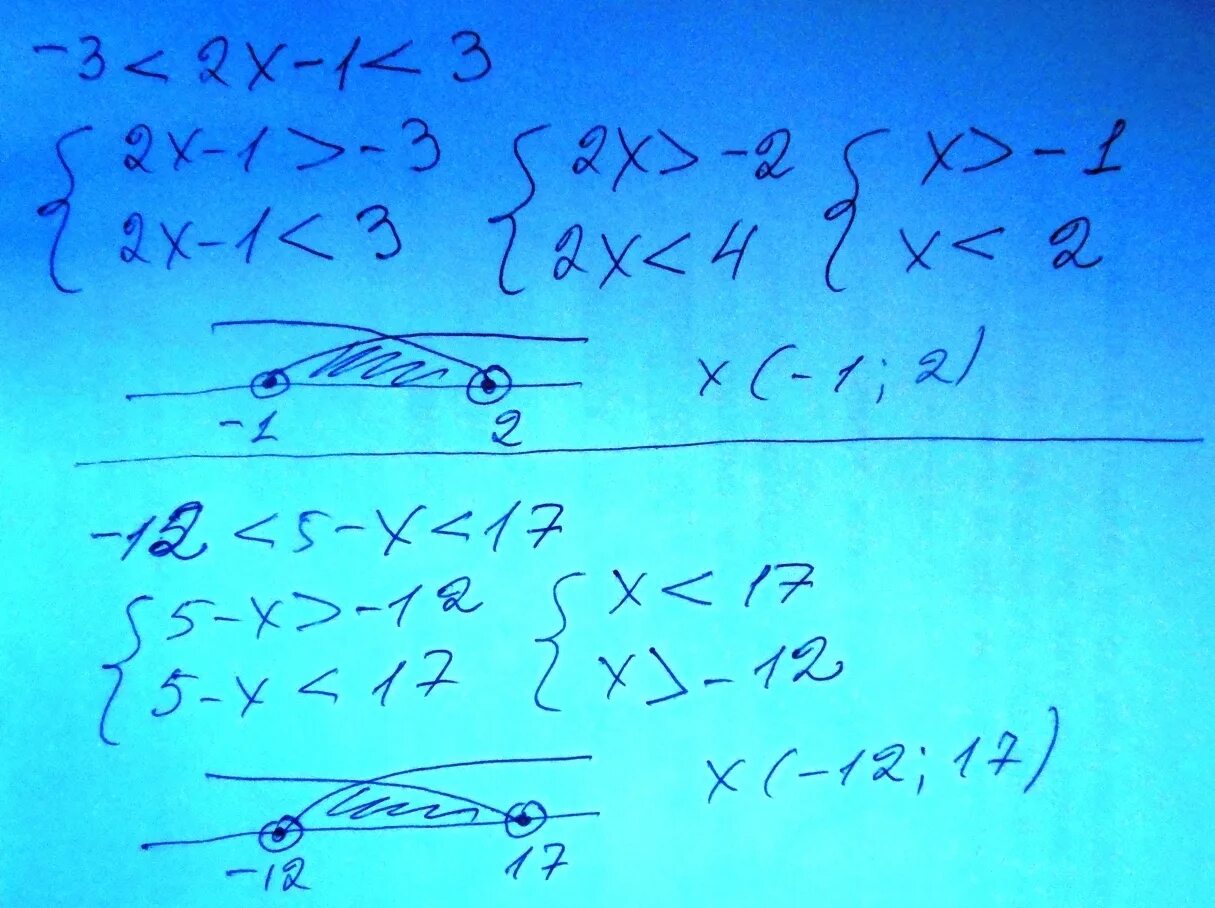 -3 < 2x - 1 < 3
{ 2x - 1 > -3 { 2x > -2 { x > -1
2x - 1 < 3 2x < 4 x < 2
-1 2 x (-1; 2)
-12 < 5 - x < 17
{ 5 - x > -12 { x < 17
5 - x < 17 x > -12
-12 17 x (-12; 17)